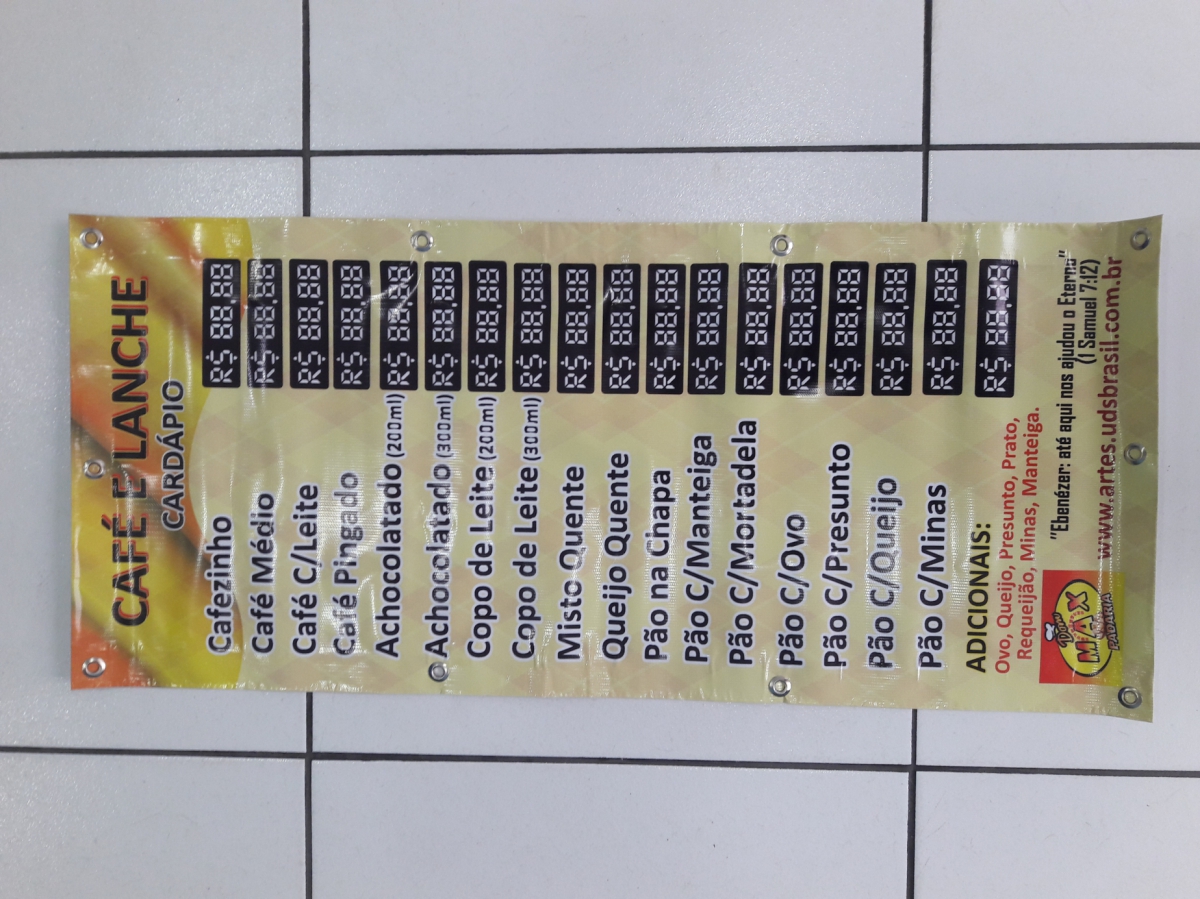 CAFÉ E LANCHE
CARDÁPIO
Cafezinho R$ 88,88
Café Médio R$ 88,88
Café C/Leite R$ 88,88
Café Pingado R$ 88,88
Achocolatado (200ml) R$ 88,88
Achocolatado (300ml) R$ 88,88
Copo de Leite (200ml) R$ 88,88
Copo de Leite (300ml) R$ 88,88
Misto Quente R$ 88,88
Queijo Quente R$ 88,88
Pão na Chapa R$ 88,88
Pão C/Manteiga R$ 88,88
Pão C/Mortadela R$ 88,88
Pão C/Ovo R$ 88,88
Pão C/Presunto R$ 88,88
Pão C/Queijo R$ 88,88
Pão C/Minas R$ 88,88
ADICIONAIS: R$ 88,88
Ovo, Queijo, Presunto, Prato,
Requeijão, Minas, Manteiga.
"Ebenézer: até aqui nos ajudou o Eterno"
(1 Samuel 7:12)
MAX
PADARIA
www.artes.udsbrasil.com.br